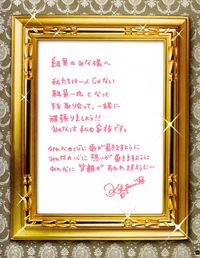 組員のみな様へ
私たちは一人じゃない
組員一丸となって
手を取り合って、一緒に
頑張りましょう!!
みんなは私の家族です。
みんなの心に 歌が届きますように
みんなの心に 想いが届きますように
みんなに 笑顔が あふれますように…